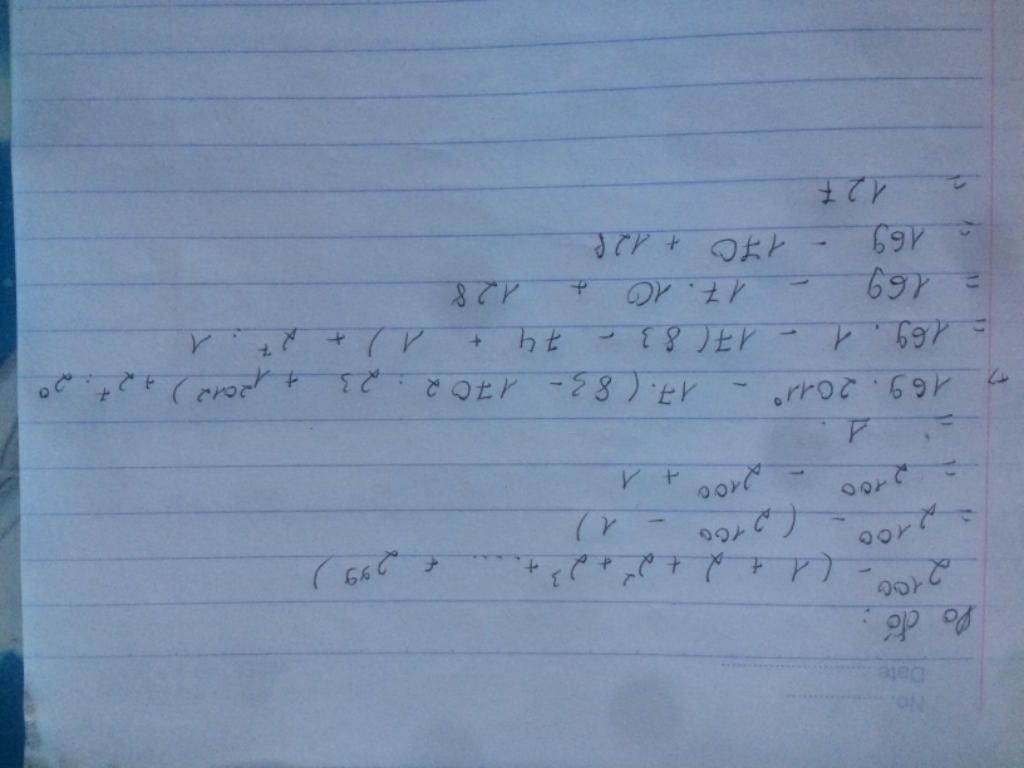 No.
Date
Do đó:
2¹⁰⁰ - (1 + 2 + 2² + 2³ + .... + 2⁹⁹)
= 2¹⁰⁰ - (2¹⁰⁰ - 1)
= 2¹⁰⁰ - 2¹⁰⁰ + 1
= 1.
169 . 2011⁰ - 17. (83 - 1702 : 23 + 1²⁰¹²) + 2⁷ : 2⁰
= 169 . 1 - 17 (83 - 74 + 1) + 2⁷ : 1
= 169 - 17 . 10 + 128
= 169 - 170 + 128
= 127